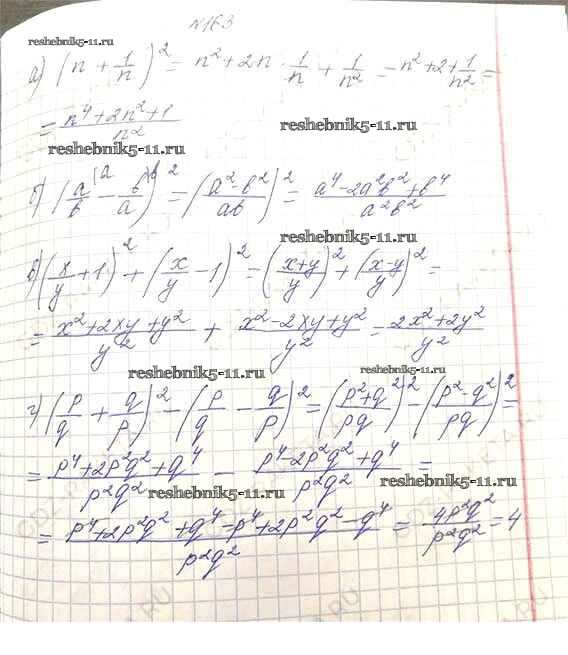 №163
reshebnik5-11.ru
reshebnik5-11.ru
а) (n + 1/n)² = n² + 2n · 1/n + 1/n² = n² + 2 + 1/n² =
= (n⁴ + 2n² + 1)/n²
reshebnik5-11.ru
reshebnik5-11.ru
б) (a/b - b/a)² = ((a² - b²)/ab)² = (a⁴ - 2a²b² + b⁴)/a²b²
reshebnik5-11.ru
в) (x/y + 1)² + (x/y - 1)² = ((x+y)/y)² + ((x-y)/y)² =
= (x² + 2xy + y²)/y² + (x² - 2xy + y²)/y² = (2x² + 2y²)/y²
reshebnik5-11.ru
reshebnik5-11.ru
г) (p/q + q/p)² - (p/q - q/p)² = ((p² + q²)/pq)² - ((p² - q²)/pq)² =
= (p⁴ + 2p²q² + q⁴)/p²q² - (p⁴ - 2p²q² + q⁴)/p²q² =
reshebnik5-11.ru
reshebnik5-11.ru
= (p⁴ + 2p²q² + q⁴ - p⁴ + 2p²q² - q⁴)/p²q² = 4p²q²/p²q² = 4
reshebnik5-11.ru
reshebnik5-11.ru